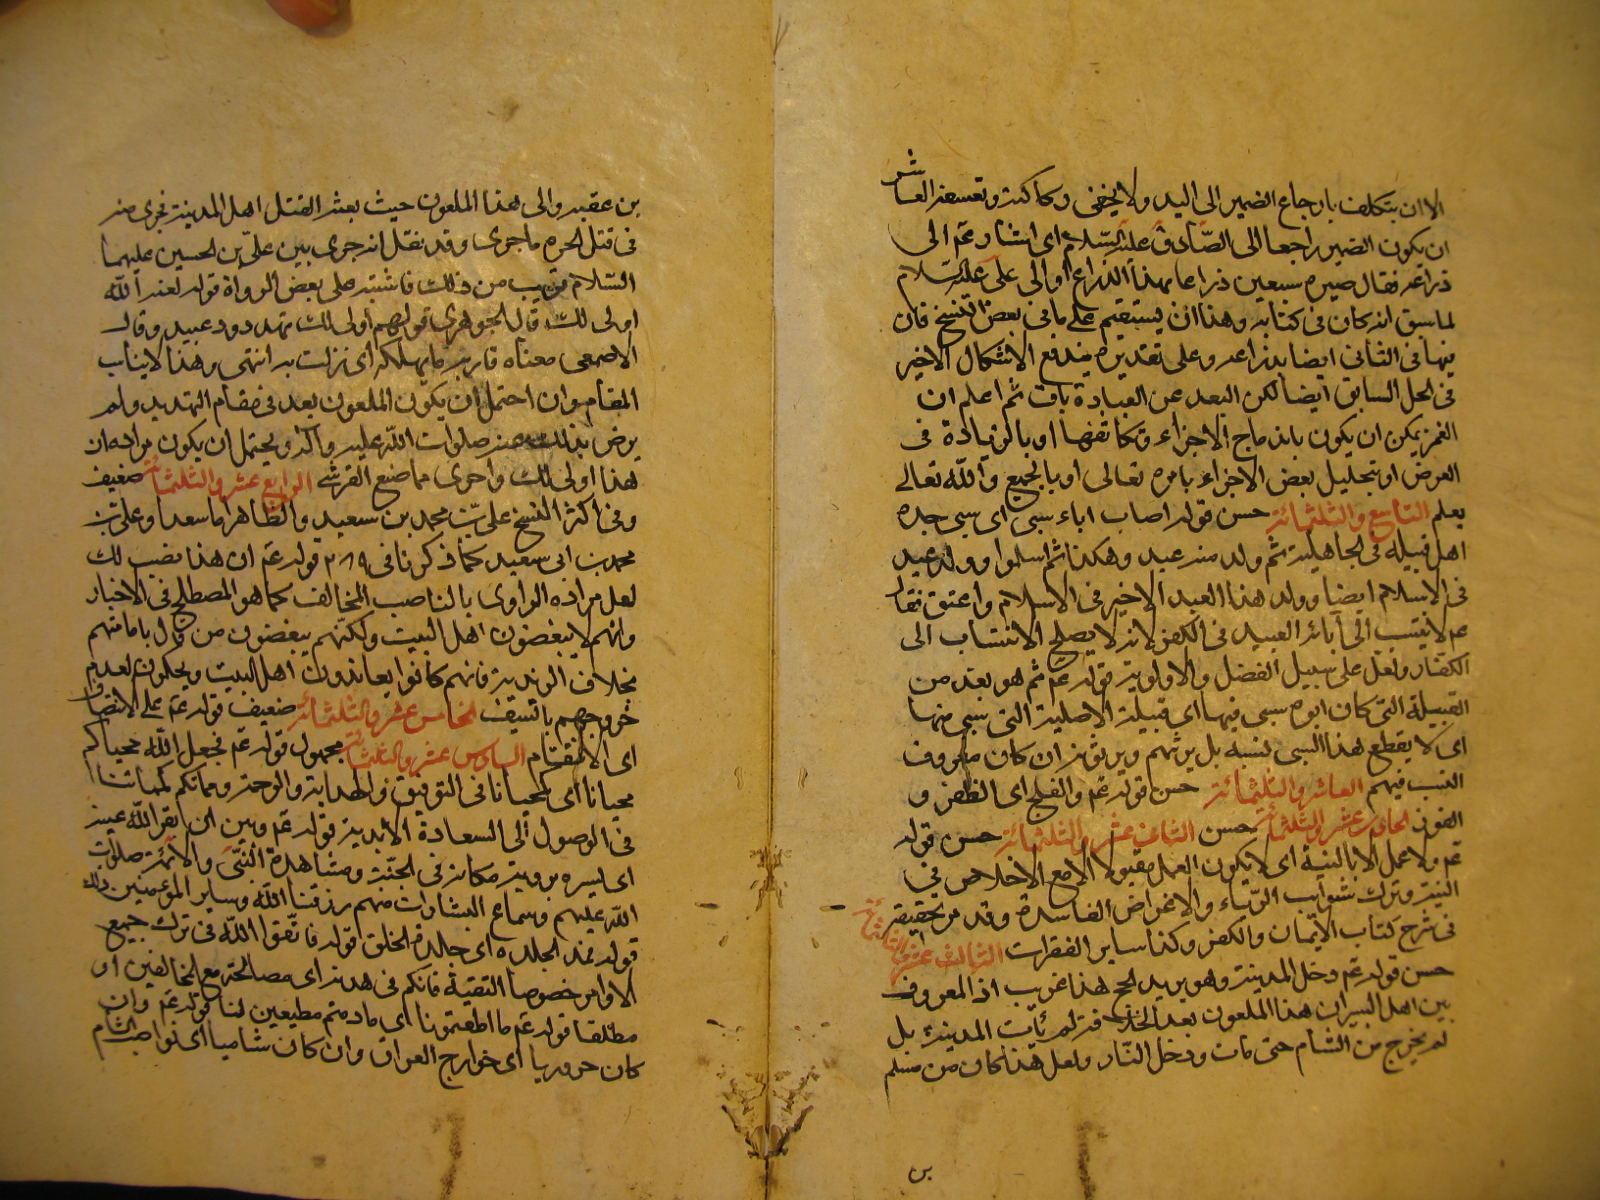 الا ان يتكلف بارجاع الضمير الى اليد ولا يخفى ركاكته وتعسفه العاشر
ان يكون الضمير راجعا الى الصادق عليه السلام اى اشار عم الى
ذراعه فقال صيره سبعين ذراعا بهذا الذراع او الى على عليه السلام
لما سبق انه كان فى كتابه وهذا ان يستقيم على ما فى بعض النسخ فان
فيها فى الثانى ايضا بذراعه وعلى تقديره يندفع الاشكال الاخير
فى الحل السابق ايضا لكن البعد عن العبادة باق ثم اعلم ان
الغمز يمكن ان يكون باندماج الاجزاء وتكاثفها او بالزيادة فى
العرض او بتحليل بعض الاجزاء بامره تعالى او بالجميع والله تعالى
يعلم التاسع والثلثمائة حسن قوله اصاب اباه سبى اى سبى جده
اهل قبيلة فى الجاهلية ثم ولد منه عبد وهكذا ثم اسلموا وولد عبد
فى الاسلام ايضا وولد هذا العبد الاخير فى الاسلام واعتق فقال
عم لا ينتسب الى آبائه العبيد فى الكفر لانه لا يصلح الانتساب الى
الكفار ولعل على سبيل الفضل والاولوية قوله عم ثم هو يعد من
القبيلة التى كان ابوه سبى فيها اى قبيلته الاصلية التى سبى منها
اى لا يقطع هذا السبى نسبه بل يرثهم ويرثونه ان كان معروف
النسب فيهم العاشر والثلثمائة حسن قوله عم والفلج اى الظفر و
الفوز الحادى عشر والثلثمائة حسن الثانى عشر والثلثمائة حسن قوله
عم ولا عمل الا بالنية اى لا يكون العمل مقبولا الا مع الاخلاص فى
النية وترك شوائب الرياء والاغراض الفاسدة وقد مر تحقيقه
فى شرح كتاب الايمان والكفر وكذا ساير الفقرات الثالث عشر والثلثمائة
حسن قوله عم دخل المدينة وهو يريد الحج هذا غريب اذ المعروف
بين اهل السير ان هذا الملعون بعد الخلافة لم يأت المدينة بل
لم يخرج من الشام حتى مات ودخل النار ولعل هذا كان من مسلم
بن
بن عقبة والى هذا الملعون حيث بعثه لقتل اهل المدينة فجرى منه
فى قتل الحره ما جرى وقد نقل انه جرى بينه وبين على بن الحسين عليهما
السلام قريب من ذلك فاشتبه على بعض الرواة قوله لعنه الله
اولى لك قال الجوهرى قولهم اولى لك تهدد ووعيد وقال
الاصمعى معناه قاربه ما يهلكه اى نزلت به انتهى وهذا لا يناسب
المقام وان احتمل ان يكون الملعون بعد فى مقام التهديد ولم
يرض بذلك عنه صلوات الله عليه وآله ويحتمل ان يكون مراده ان
هذا اولى لك واحرى مما صنع القرشى الرابع عشر والثلثمائة ضعيف
وفى اكثر النسخ على بن محمد بن سعيد والظاهر اما سعد او على بن
محمد بن ابى سعيد كما ذكرنا فى ٣٠٩ قوله عم ان هذا نصب لك
لعل مراده الراوى بالناصب المخالف كما هو المصطلح فى الاخبار
وانهم لا يبغضون اهل البيت ولكنهم يبغضون من قال بامامتهم
بخلاف الزيدية فانهم كانوا يعاندون اهل البيت ويحكون لعدم
خروجهم بالسيف الخامس عشر والثلثمائة ضعيف قوله عم على الانتصار
اى الانتقام السادس عشر والثلثمائة مجهول قوله عم فجعل الله محياكم
محيانا اى كمحيانا فى التوفيق والهداية والرحمة ومماتكم كمماتنا
فى الوصول الى السعادة الابدية قوله عم وبين ان يقر الله عينه
اى يسره برؤية مكانه فى الجنة ومشاهدة النبى والائمة صلوات
الله عليهم وسماع البشارات منهم رزقنا الله وساير المؤمنين ذلك
قوله فمد الجلدة اى جلدة الحلق قوله فاتقوا الله فى ترك جميع
الاوامر خصوصا التقية فانكم فى هدنة اى مصالحة مع المخالفين او
مطلقا قوله عم ما اطعتمونا اى ما دمتم مطيعين لنا قوله عم وان
كان حروريا اى خوارج العراق وان كان شاميا اى نواصب الشام